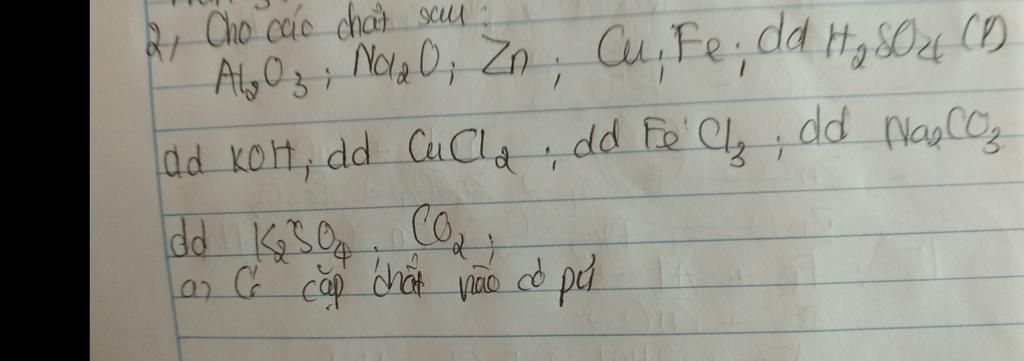 2, Cho các chất sau:
Al2O3; Na2O; Zn; Cu; Fe; dd H2SO4 (l)
dd KOH; dd CuCl2; dd FeCl3; dd Na2CO3
dd K2SO4. CO2;
a) cặp chất nào có pứ